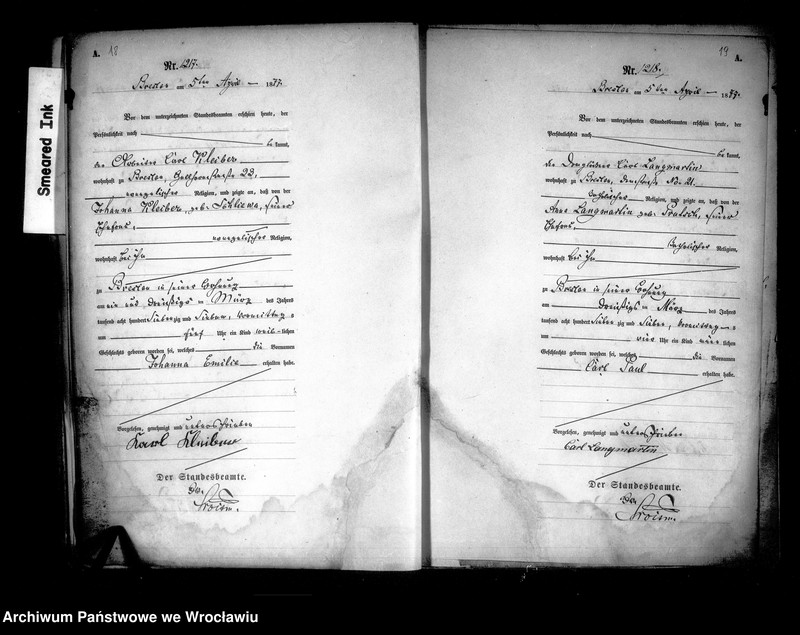 A. 18
Nr. 1217.
Breslau am 5ten April 1877.
Vor dem unterzeichneten Standesbeamten erschien heute, der
Persönlichkeit nach
be kannt,
der Arbeiter Carl Kleiber
wohnhaft zu Breslau, 22,
evangelischer Religion, und zeigte an, daß von der
Johanna Kleiber, geb. seiner
Ehefrau,
evangelischer Religion,
wohnhaft bei ihm
zu Breslau in seiner Wohnung
am ein und dreißigsten März des Jahres
tausend acht hundert sieben zig und sieben, Vormittags
um fünf Uhr ein Kind weib lichen
Geschlechts geboren worden sei, welches die Vornamen
Johanna Emilie
erhalten habe.
Vorgelesen, genehmigt und unterschrieben
Karl
Der Standesbeamte.
19 A.
Nr. 1218.
Breslau am 5ten April 1877.
Vor dem unterzeichneten Standesbeamten erschien heute, der
Persönlichkeit nach
be kannt,
der Carl Langmartin
wohnhaft zu Breslau, No. 21.
katholischer Religion, und zeigte an, daß von der
Anna Langmartin geb. seiner
Ehefrau,
katholischer Religion,
wohnhaft bei ihm
zu Breslau in seiner Wohnung
am dreißigsten März des Jahres
tausend acht hundert sieben zig und sieben, Vormittags
um vier Uhr ein Kind männ lichen
Geschlechts geboren worden sei, welches die Vornamen
Carl Paul
erhalten habe.
Vorgelesen, genehmigt und unterschrieben
Carl Langmartin
Der Standesbeamte.
Smeared Ink
Archiwum Państwowe we Wrocławiu